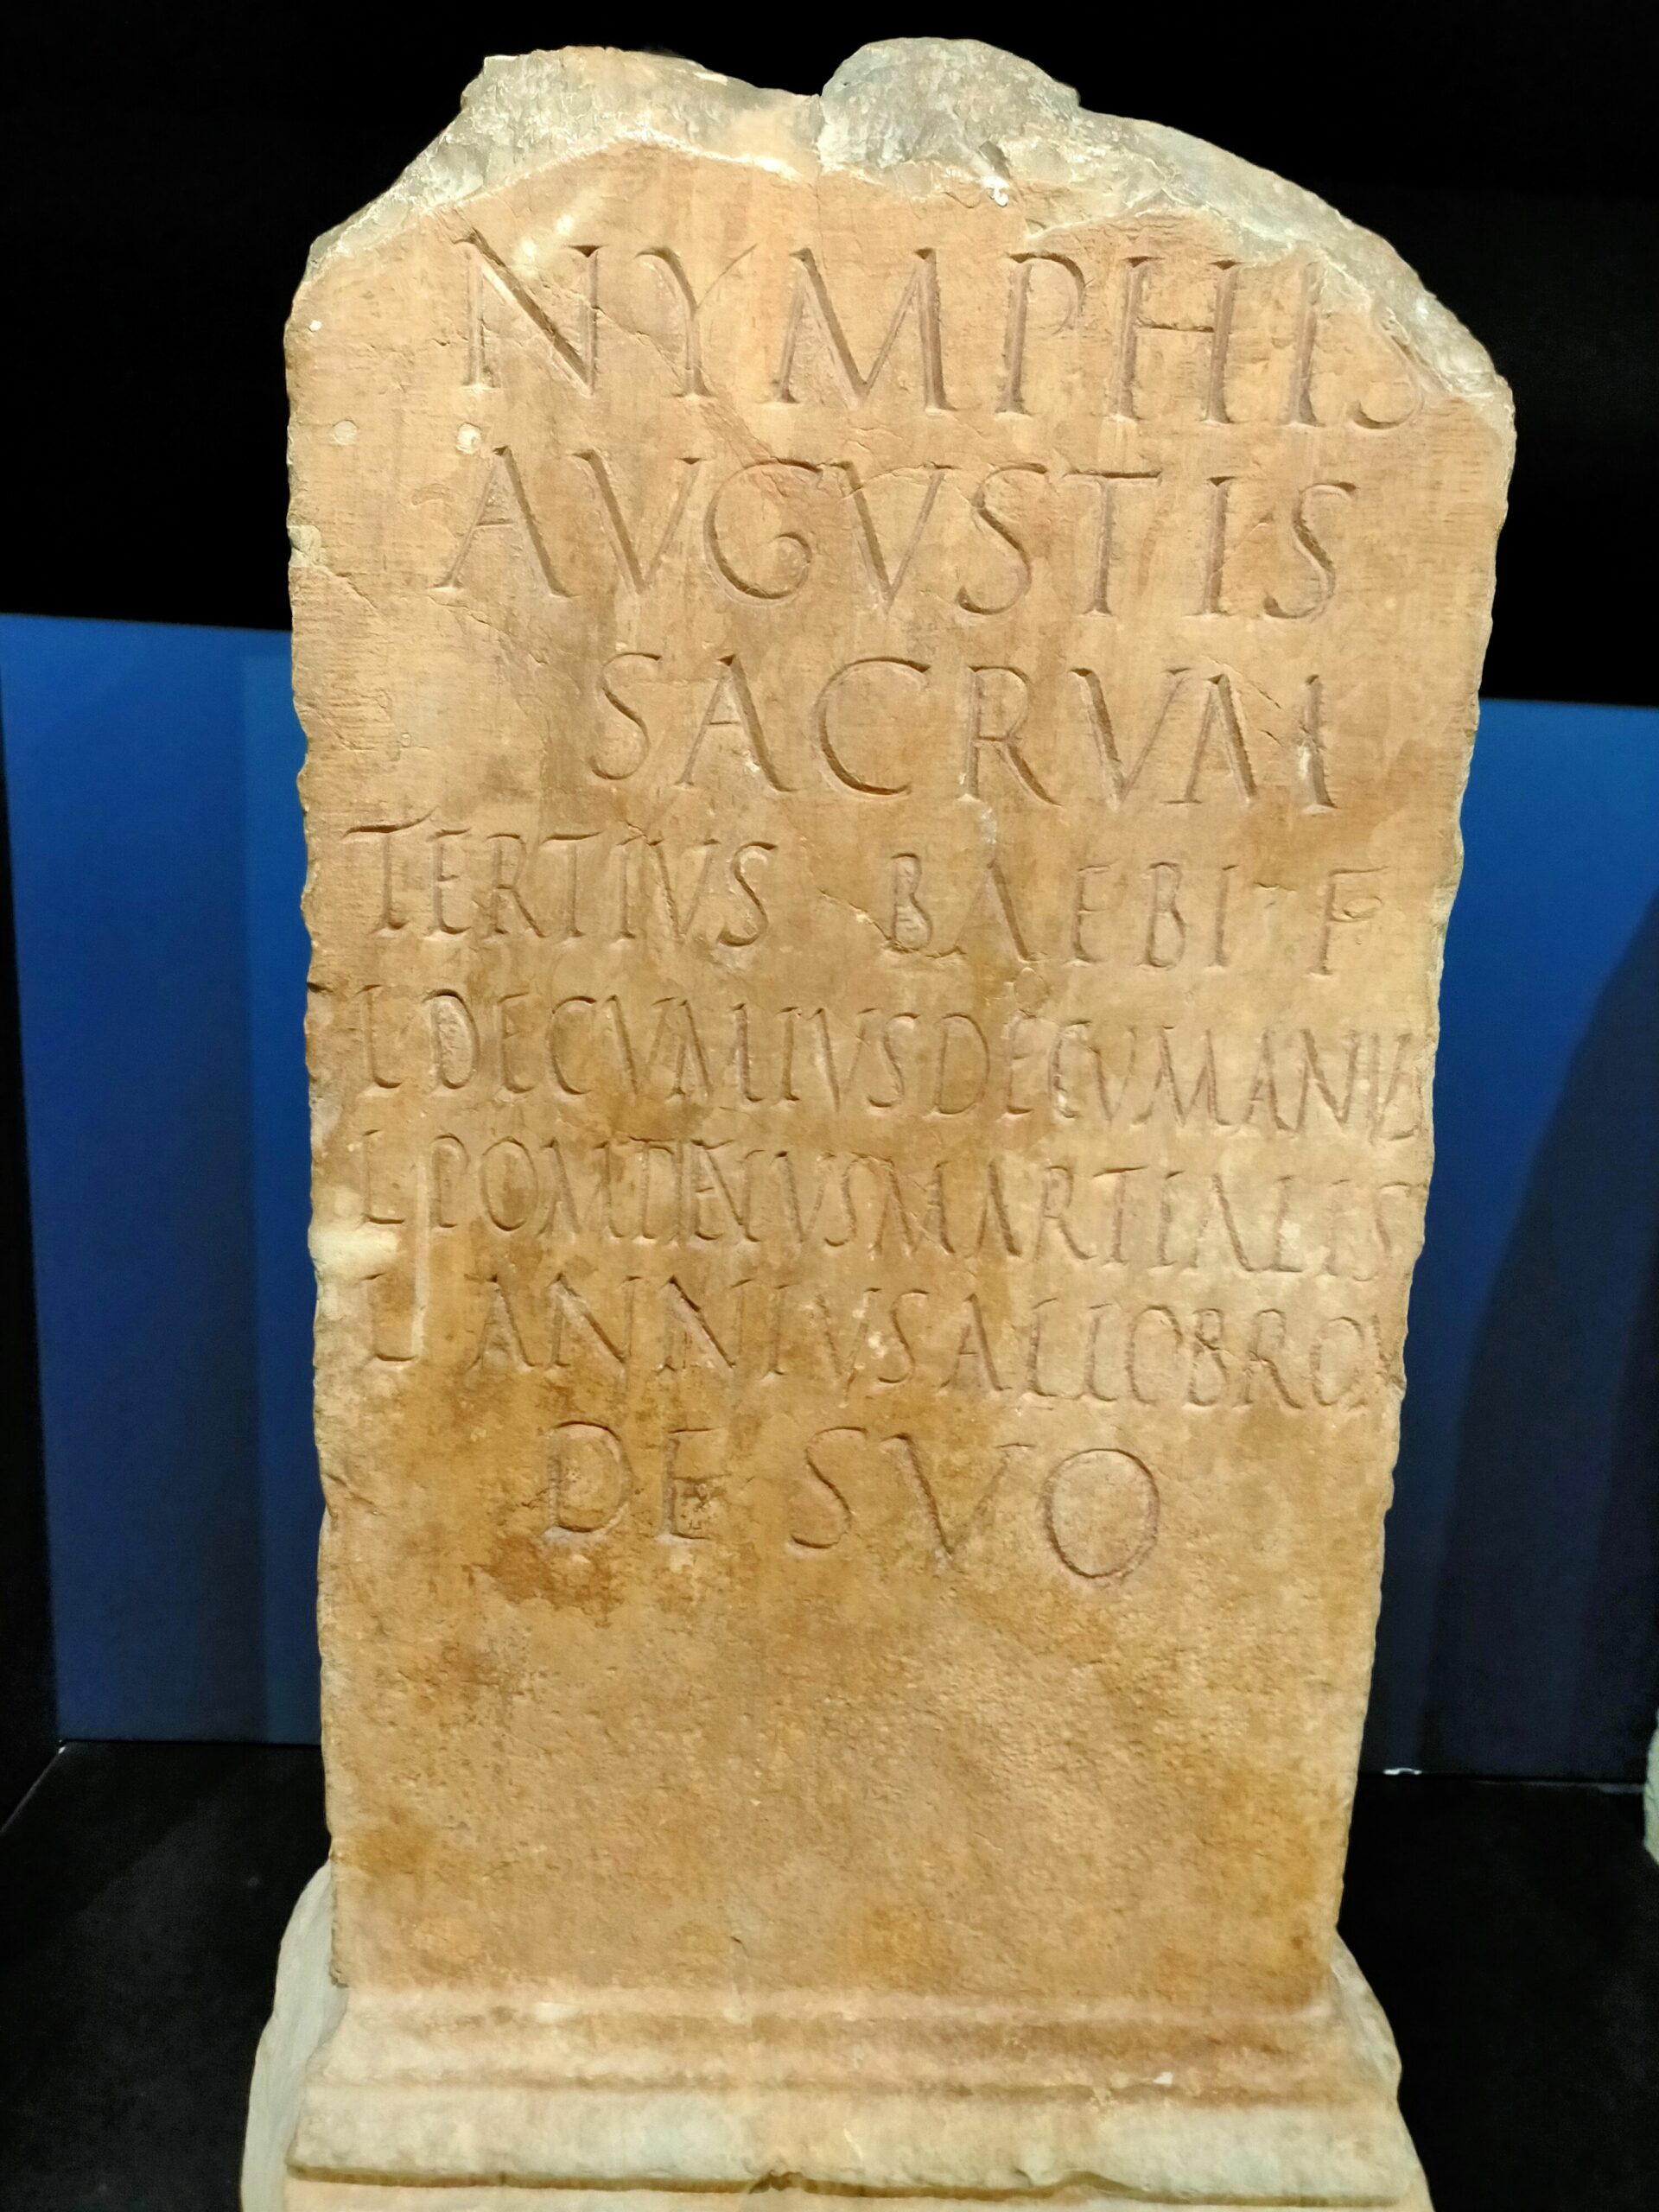 NYMPHIS
AVGVSTIS
SACRVM
TERTIVS BAEBI F
L DECVMIVS DECVMANVS
L POMTINVS MARTIALIS
L ANNIVS ALLOBROX
DE SVO